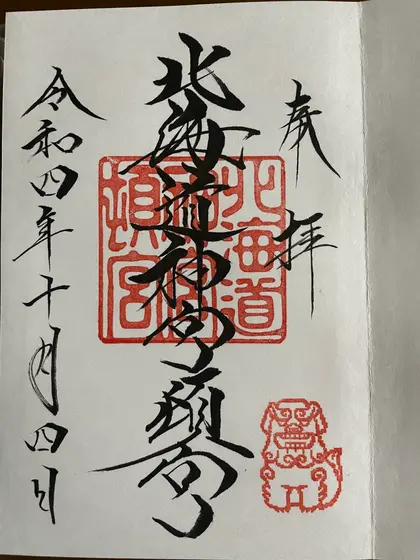 奉拝
北海道神宮頓宮
令和四年十月四日
北海道
頓宮